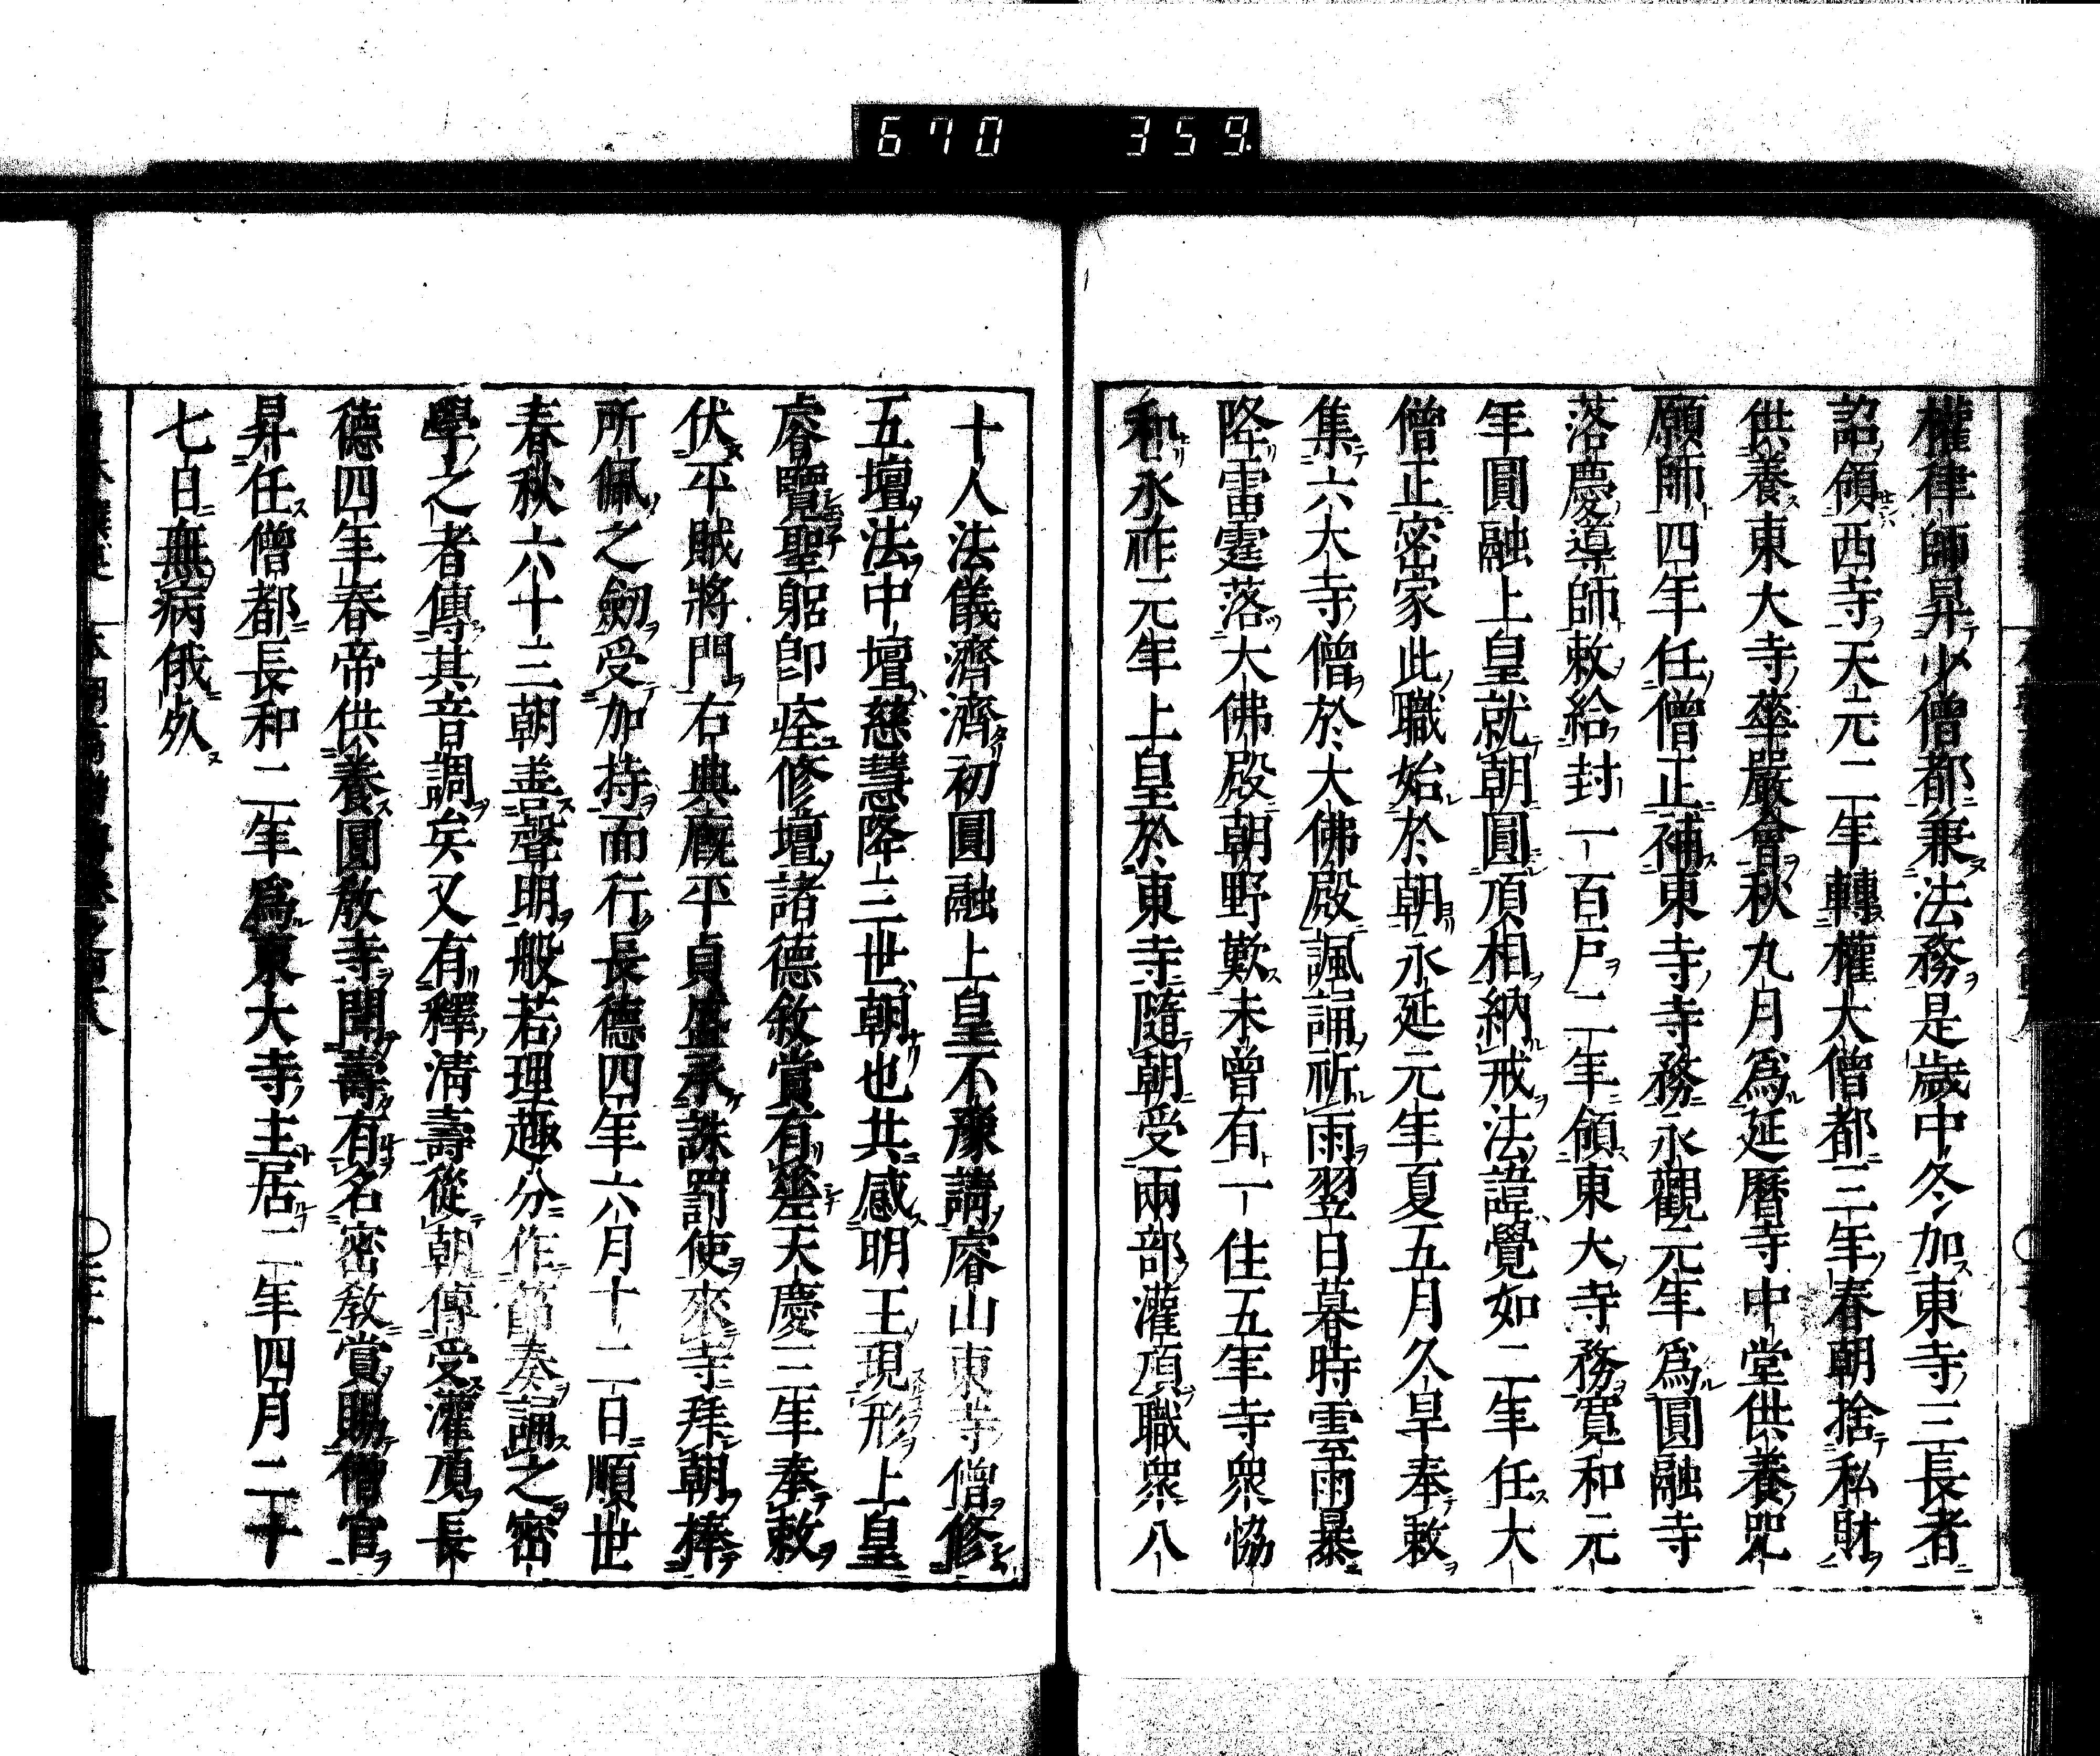 670 359
權律師昇少僧都兼法務是歲中冬加東寺三長者
詔領西寺天元二年轉權大僧都三年春朝捨私財
供養東大寺華嚴會秋九月爲延曆寺中堂供養咒
願師四年任僧正補東寺寺務永觀元年爲圓融寺
落慶導師敕給封一百戸二年領東大寺務寬和元
年圓融上皇就朝圓頂相納戒法諱覺如二年任大
僧正密家此職始於朝永延元年夏五月久旱奉敕
集六大寺僧於大佛殿諷誦祈雨翌日暮時雲雨暴
降雷霆落大佛殿朝野歎未曾有一住五年寺衆恊
和永祚元年上皇於東寺隨朝受兩部灌頂職衆八
十人法儀濟濟初圓融上皇不豫請睿山東寺僧修
五壇法中壇慈慧降三世朝也共感明王現形上皇
睿覽聖躬卽痊修壇諸德敘賞有差天慶三年奉敕
伏平賊將門右典廐平貞盛承誅罰使來寺拜朝捧
所佩之劒受加持而行長德四年六月十二日順世
春秋六十三朝善聲明般若理趣分作節奏誦之密
學之者傳其音調矣又有釋淸壽從朝傳受灌頂長
德四年春帝供養圓敎寺聞壽有名密敎賞賜僧官
昇任僧都長和二年爲東大寺主居二年四月二十
七日無病俄㱙